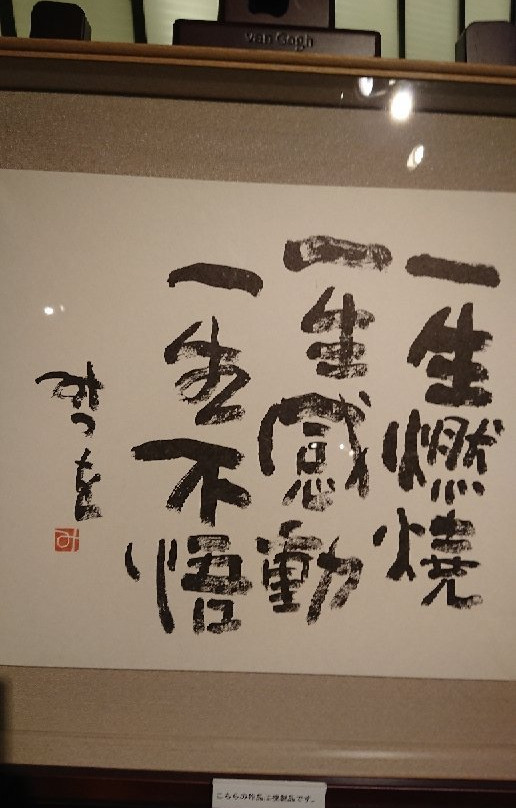 van Gogh
一生燃焼
一生感動
一生不悟
みつを
み
こちらの作品は複製品です。